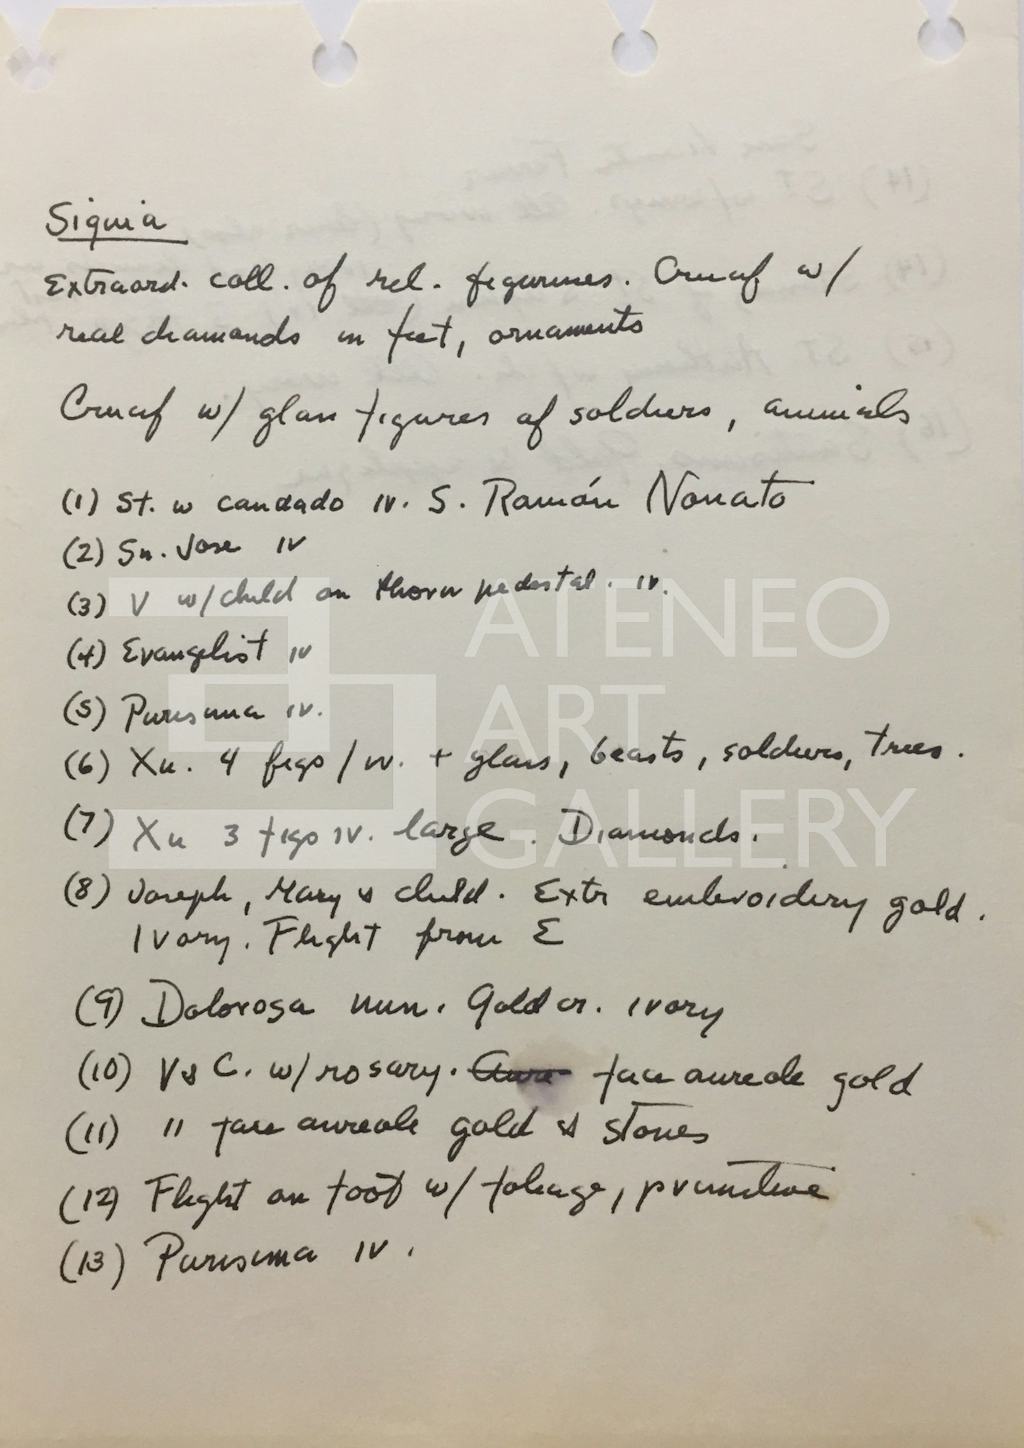 Siquia
Extraord. coll. of rel. figurines. Crucif w/
real diamonds in feet, ornaments
Crucif w/ glass figures of soldiers, animals
(1) St. w candado iv. S. Ramón Nonato
(2) Sn. Jose iv
(3) V w/child on thorn pedestal. iv.
(4) Evangelist iv
(5) Purisima iv.
(6) Xu. 4 figs / iv. + glass, beasts, soldiers, trees.
(7) Xu 3 figs iv. large. Diamonds.
(8) Joseph, Mary & child. Extr embroidery gold.
Ivory. Flight from E
(9) Dolorosa nun. Gold cr. ivory
(10) V & C. w/ rosary. face aureole gold
(11) " face aureole gold & stones
(12) Flight on foot w/ foliage, primitive
(13) Purisima iv.
ATENEO
ART
GALLERY